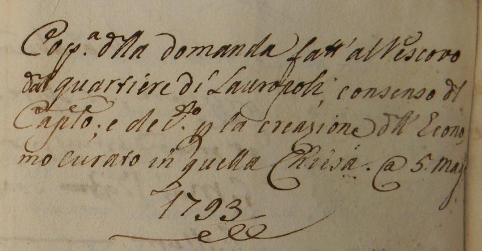 Cop.ª dlla domanda fatt' al Vescovo
dal quartiere di Lauropoli, consenso dl
Capto, e dec.to p la creazione dll' Econo
mo Curato in quella Chiesa. @ 5. Mag
1793